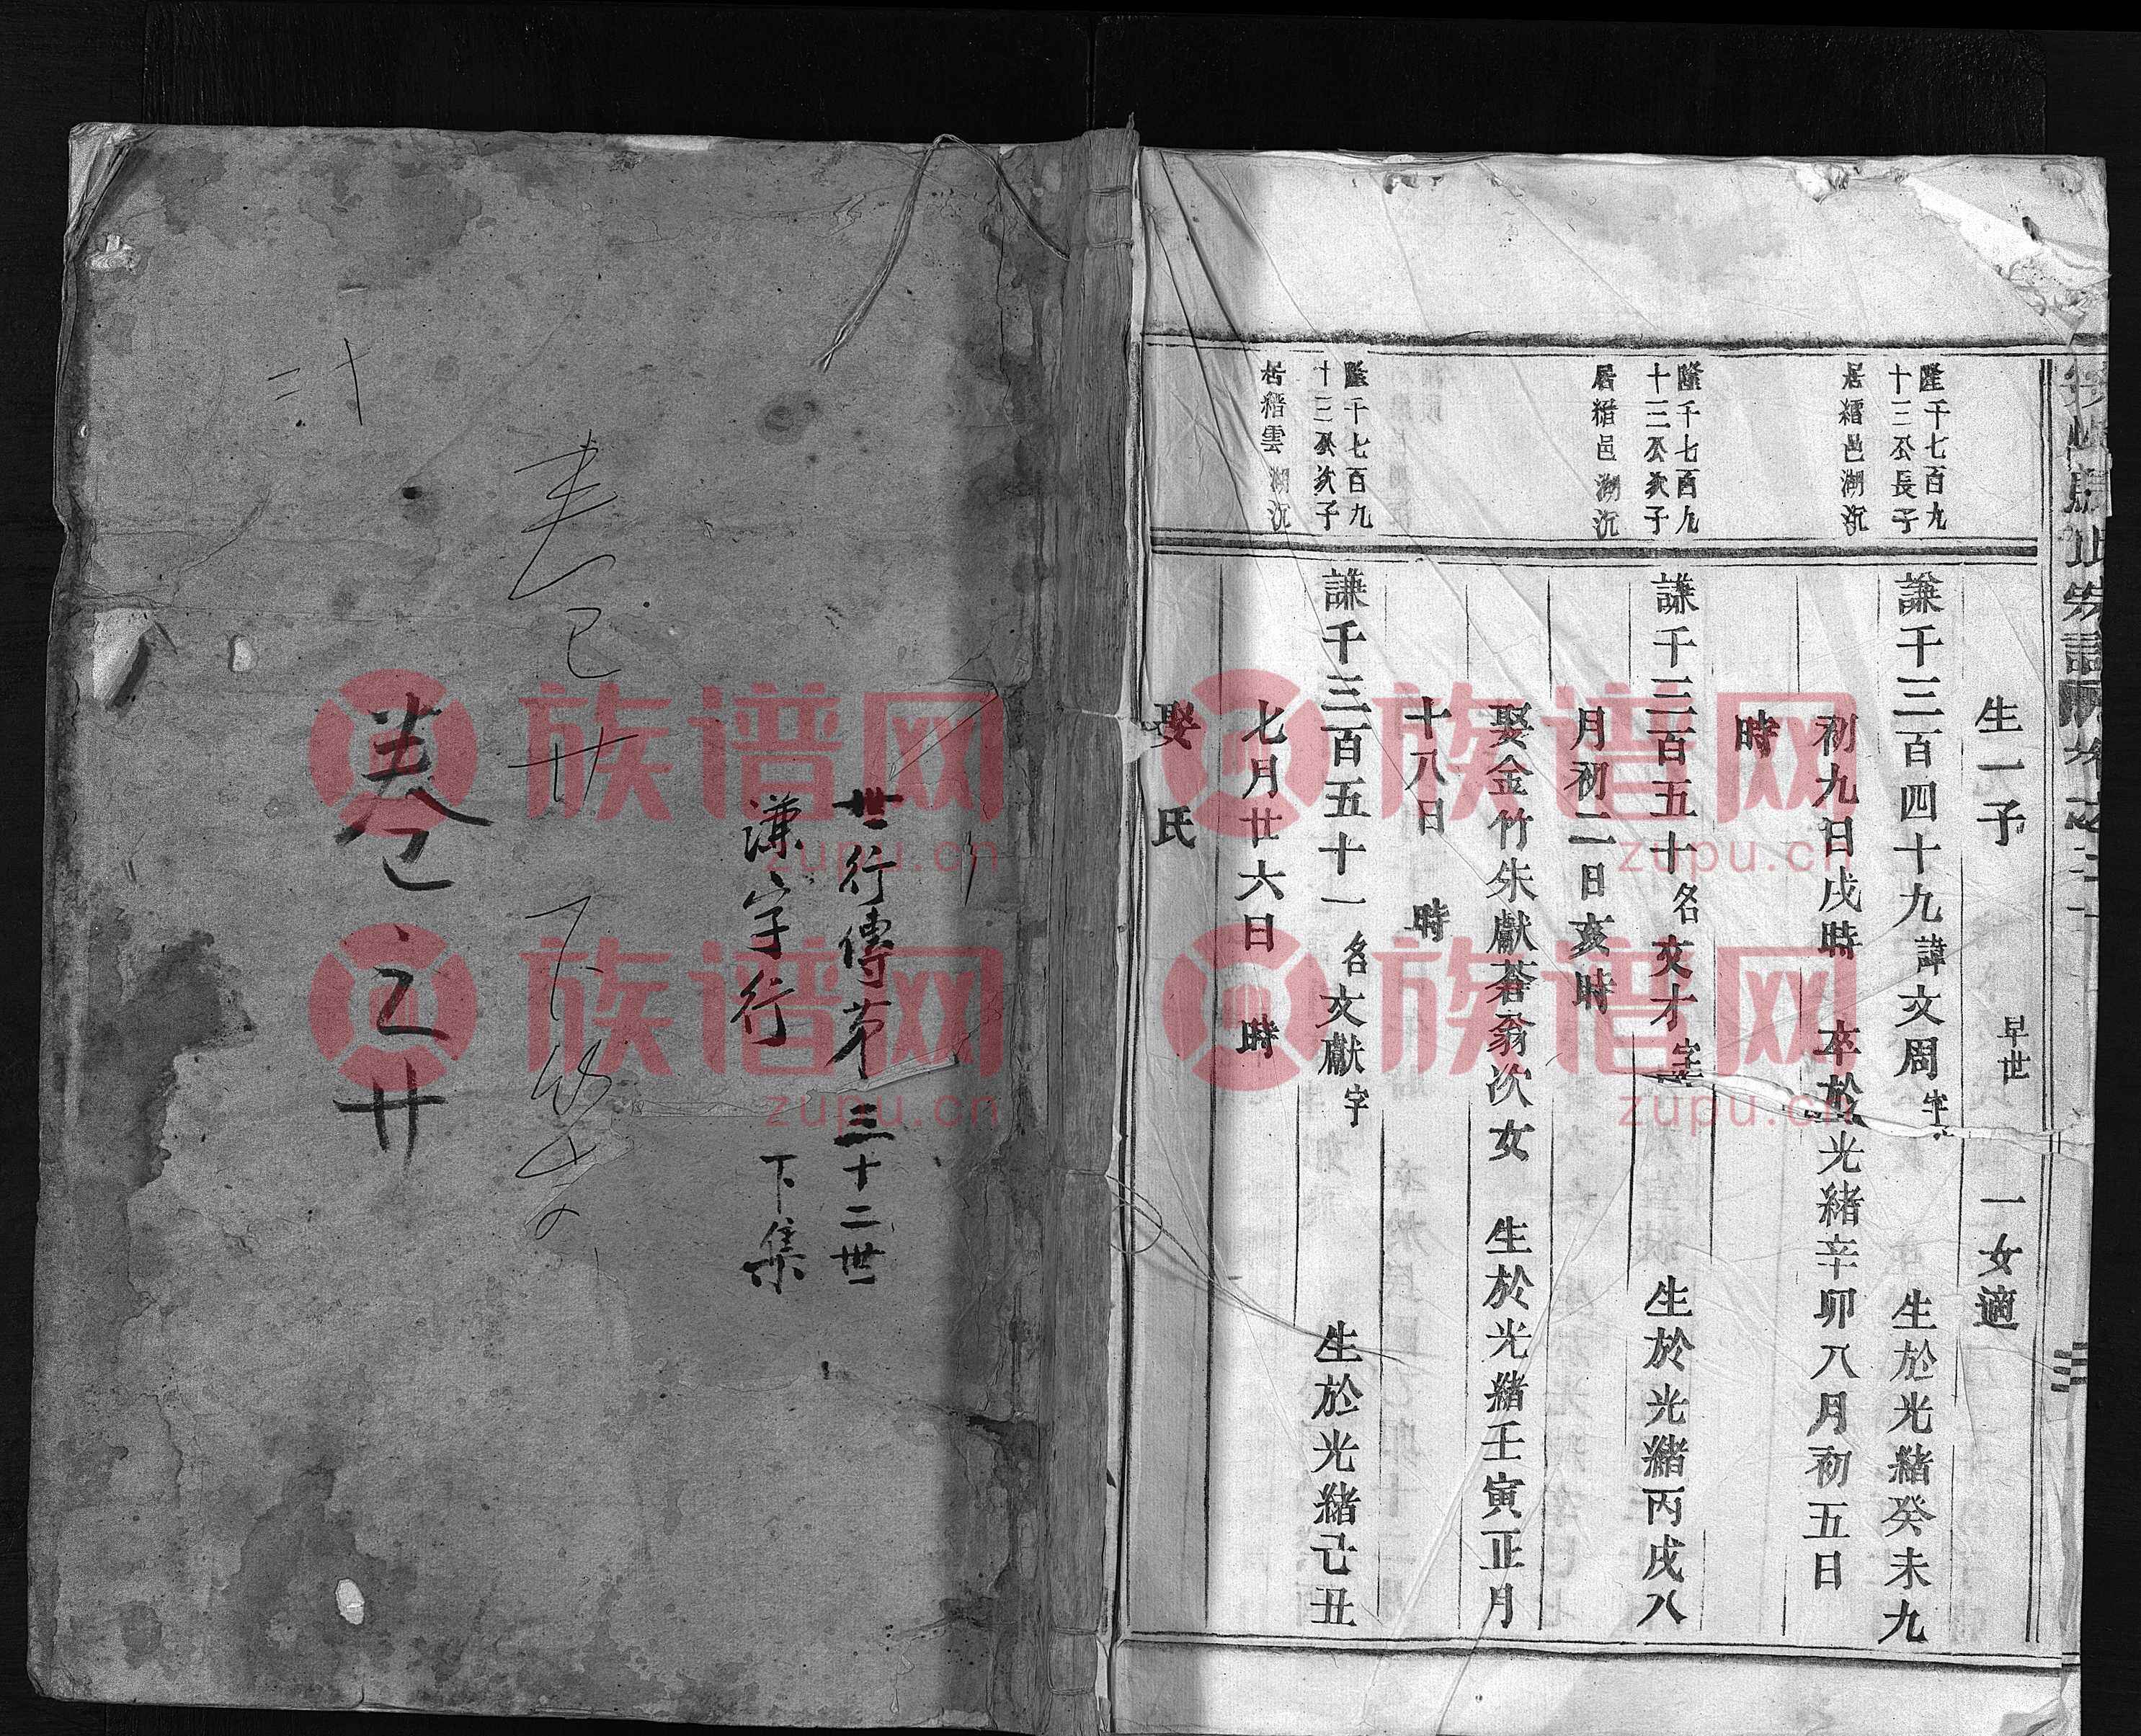 生一子 早世 一女適
隆千七百九
十三公長子
居縉邑湖沉
謙千三百四十九諱文周字 生於光緒癸未九
初九日戌時 卒於光緒辛卯八月初五日
時
隆千七百九
十三公次子
居縉邑湖沉
謙千三百五十名文才字 生於光緒丙戌八
月初二日亥時
娶金竹朱獻蒼翁次女 生於光緒壬寅正月
十八日 時
隆千七百九
十三公次子
居縉雲湖沉
謙千三百五十一名文獻字 生於光緒己丑
七月廿六日 時
娶 氏
世行傳第三十二世
謙字行 下集
卷廿
卷之廿
二十
族谱网
zupu.cn
族谱网
zupu.cn
族谱网
zupu.cn
族谱网
zupu.cn